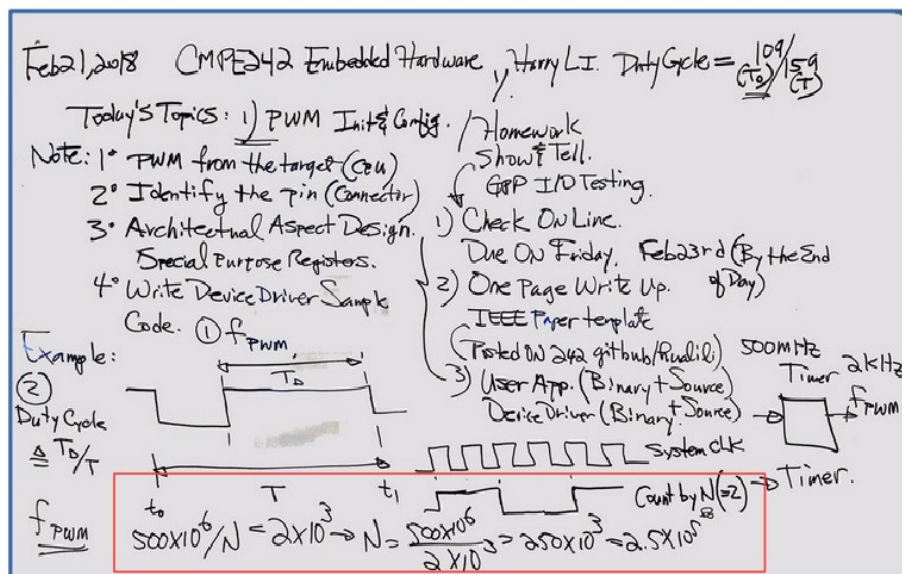 Feb 21, 2018 CMPE242 Embedded Hardware, Harry LI. Duty Cycle = 109/159
(TD) (T)
Today's Topics: 1) PWM Init & Config.
Note: 1° PWM from the target (CPU)
2° Identify the pin (Connector)
3° Architectual Aspect Design.
Special Purpose Registers.
4° Write Device Driver Sample
Code.
Homework
Show & Tell.
GPP I/O Testing.
1) Check On Line.
Due On Friday, Feb 23rd (By the End
of Day)
2) One Page Write Up.
IEEE Paper template
(Posted ON 242 github/hualili)
3) User App. (Binary + Source)
Device Driver (Binary + Source)
Example:
① fPWM
TD
②
Duty Cycle
≜ TD/T
t0 T t1
500MHz
Timer 2kHz
fPWM
System Clk
Count by N (=2) → Timer.
fPWM 500x10^6/N = 2x10^3 → N = 500x10^6 / 2x10^3 = 250x10^3 = 2.5x10^5